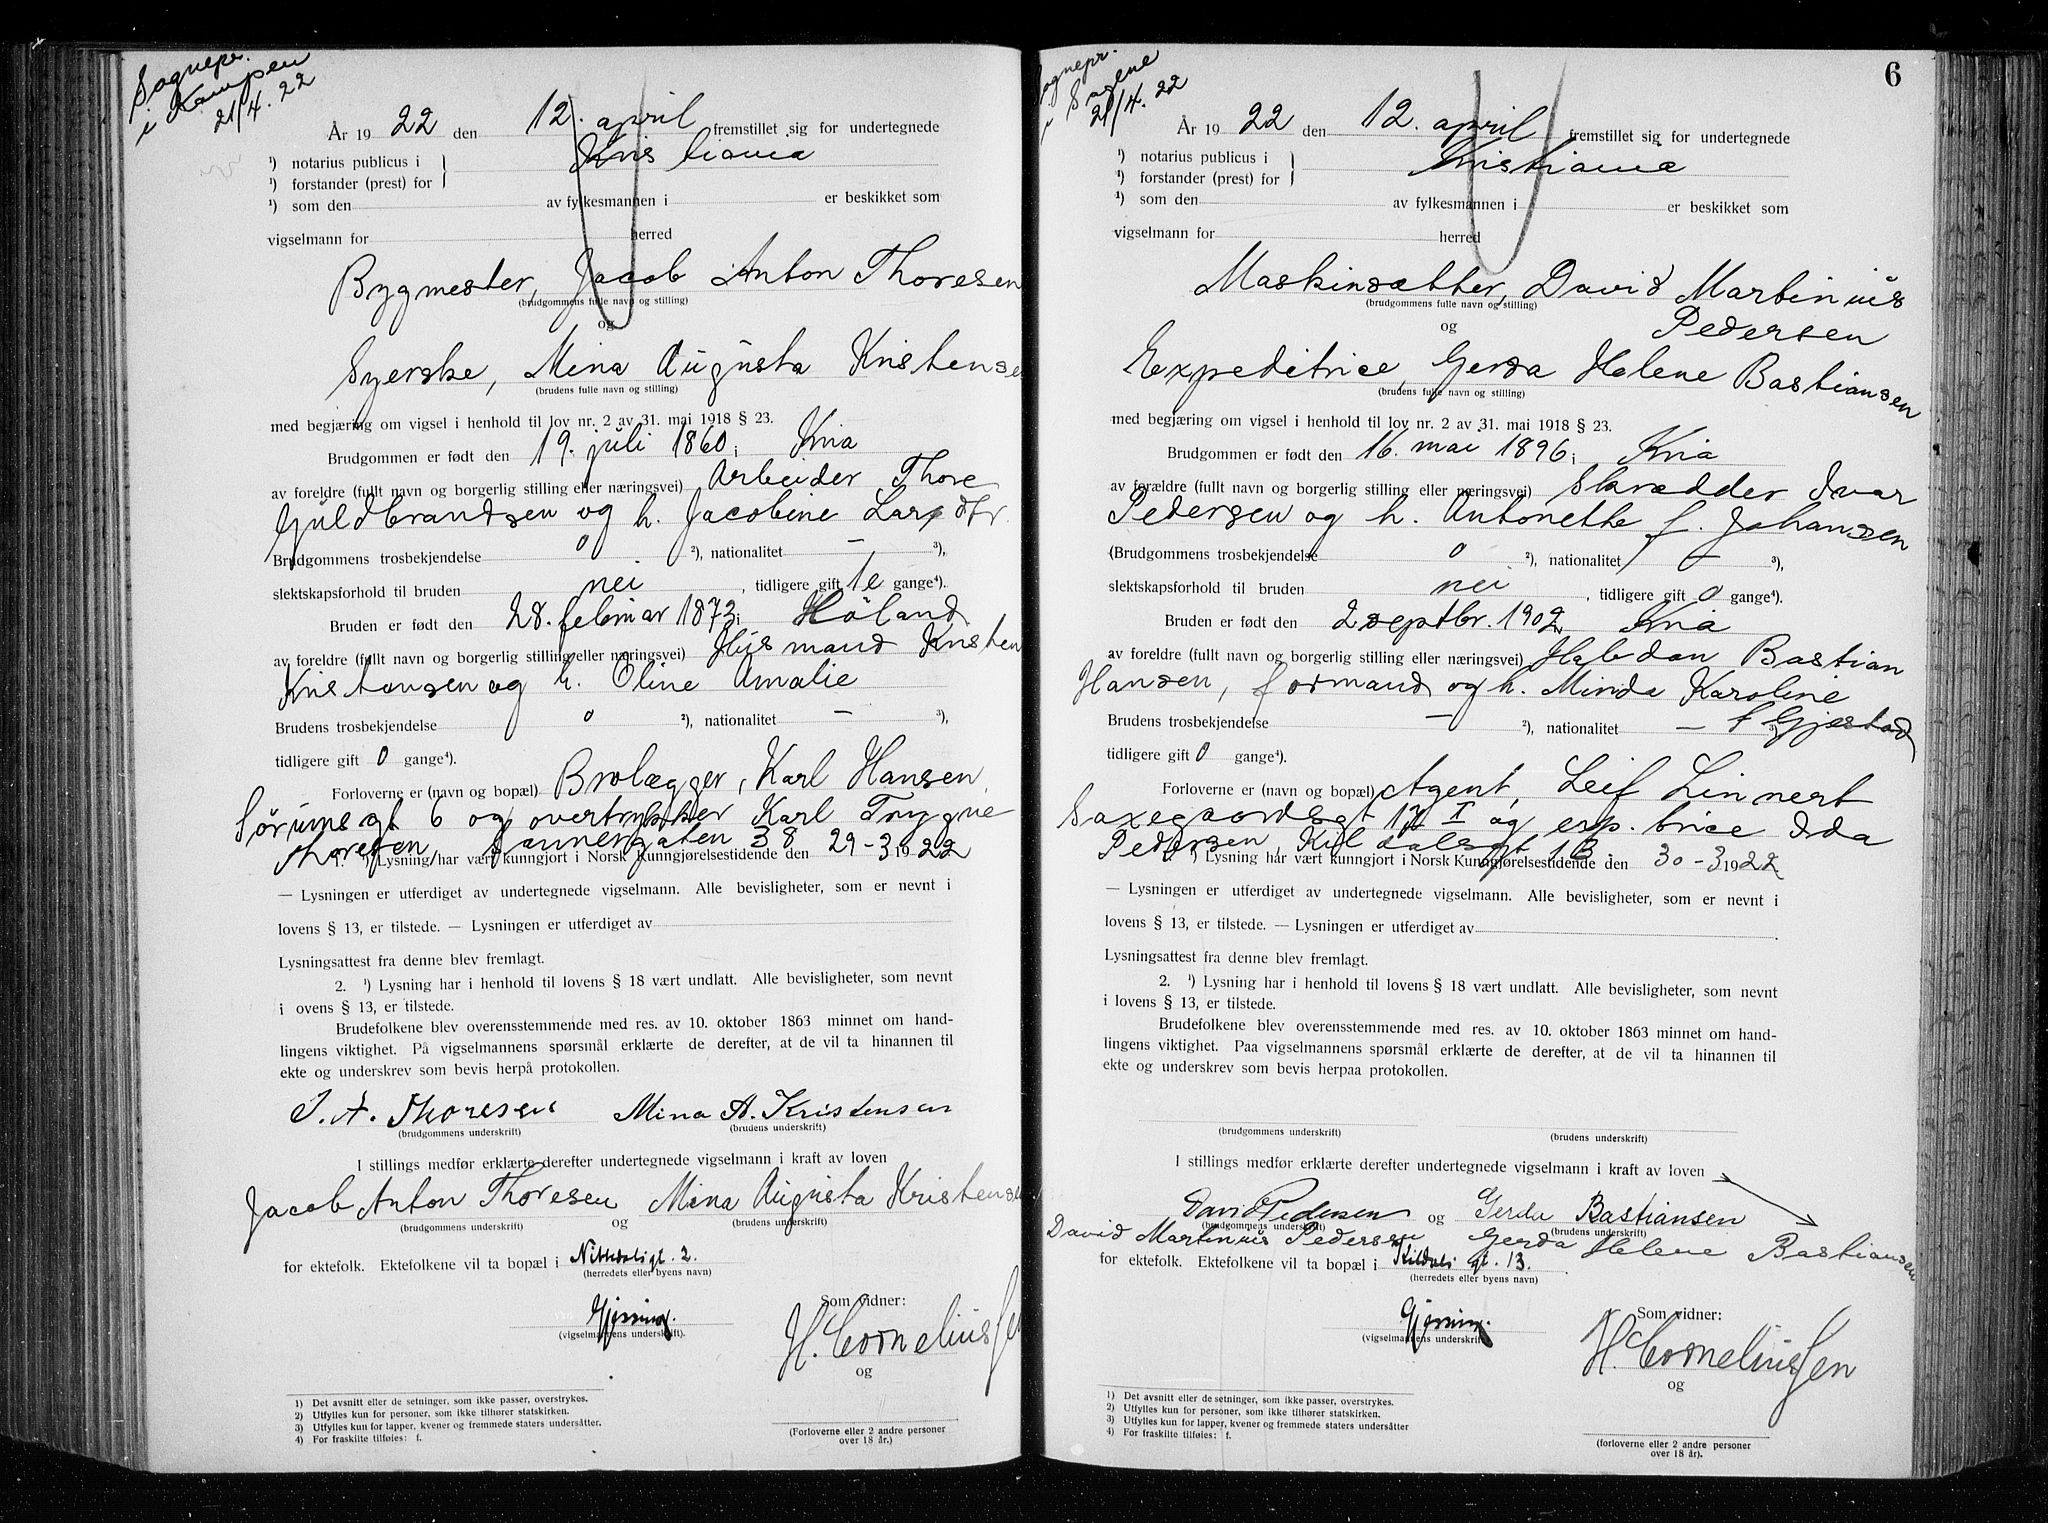 Sognepr.
i Kampen
21/4. 22
År 19 22 den 12. april fremstillet sig for undertegnede
¹) notarius publicus i } Kristiania
¹) forstander (prest) for
¹) som den av fylkesmannen i er beskikket som
vigselmann for herred
Bygmester, Jacob Anton Thoresen
(brudgommens fulle navn og stilling)
og
Syerske, Mina Augusta Kristensen
(brudens fulle navn og stilling)
med begjæring om vigsel i henhold til lov nr. 2 av 31. mai 1918 § 23.
Brudgommen er født den 19. juli 1860; Kria
av foreldre (fullt navn og borgerlig stilling eller næringsvei) Arbeider Thore
Guldbrandsen og h. Jacobine Larsdtr.
Brudgommens trosbekjendelse 0 ²), nationalitet — ³),
slektskapsforhold til bruden nei, tidligere gift 1e gange⁴).
Bruden er født den 28. februar 1873; Høland
av foreldre (fullt navn og borgerlig stilling eller næringsvei) Husmand Kristen
Kristensen og h. Oline Amalie
Brudens trosbekjendelse 0 ²), nationalitet — ³),
tidligere gift 0 gange⁴).
Forloverne er (navn og bopæl) Brolægger, Karl Hansen,
Sørumsgt 6 og overtrykker Karl Trygve
Thoresen, Jannergaten 38
1. ¹) Lysning har vært kunngjort i Norsk Kunngjørelsestidende den 29-3 1922
— Lysningen er utferdiget av undertegnede vigselmann. Alle bevisligheter, som er nevnt i
lovens § 13, er tilstede. — Lysningen er utferdiget av
Lysningsattest fra denne blev fremlagt.
2. ¹) Lysning har i henhold til lovens § 18 vært undlatt. Alle bevisligheter, som nevnt
i ovens § 13, er tilstede.
Brudefolkene blev overensstemmende med res. av 10. oktober 1863 minnet om hand-
lingens viktighet. På vigselmannens spørsmål erklærte de derefter, at de vil ta hinannen til
ekte og underskrev som bevis herpå protokollen.
J. A. Thoresen Mina A. Kristensen
(brudgommens underskrift) (brudens underskrift)
I stillings medfør erklærte derefter undertegnede vigselmann i kraft av loven
Jacob Anton Thoresen og Mina Augusta Kristensen
(brudgommens underskrift) (brudens underskrift)
for ektefolk. Ektefolkene vil ta bopæl i Nittedalsgt. 2.
(herredets eller byens navn)
Som vidner:
Gjørning.
(vigselmannens underskrift).
H. Corneliussen
og
1) Det avsnitt eller de setninger, som ikke passer, overstrykes.
2) Utfylles kun for personer, som ikke tilhører statskirken.
3) Utfylles kun for lapper, kvener og fremmede staters undersåtter.
4) For fraskilte tilføies: f.
(Forloverne eller 2 andre personer
over 18 år.)
6
Sognepr.
i Sagene
21/4. 22
År 19 22 den 12. april fremstillet sig for undertegnede
¹) notarius publicus i } Kristiania
¹) forstander (prest) for
¹) som den av fylkesmannen i er beskikket som
vigselmann for herred
Maskinsætter, David Martinius
(brudgommens fulle navn og stilling)
og Pedersen
Expeditrice, Gerda Helene Bastiansen
(brudens fulle navn og stilling)
med begjæring om vigsel i henhold til lov nr. 2 av 31. mai 1918 § 23.
Brudgommen er født den 16. mai 1896; Kria
av forældre (fullt navn og borgerlig stilling eller næringsvei) Skrædder Ivar
Pedersen og h. Antonette f. Johansen
(Brudgommens trosbekjendelse 0 ²), nationalitet — ³),
slektskapsforhold til bruden nei, tidligere gift 0 gange⁴).
Bruden er født den 2 septbr. 1902 Kria
av foreldre (fullt navn og borgerlig stilling eller næringsvei) Halvdan Bastian
Hansen, formand og h. Minda Karoline
Brudens trosbekjendelse — ²), nationalitet — ³), f. Gjestad
tidligere gift 0 gange⁴).
Forloverne er (navn og bopæl) Agent, Leif Linnert
Saxegaardsgt 12 I og exp. trice Ida
Pedersen, Kildalsgt 13.
1. ¹) Lysning har vært kunngjort i Norsk Kunngjørelsestidende den 30-3 1922.
— Lysningen er utferdiget av undertegnede vigselmann. Alle bevisligheter, som er nevnt i
lovens § 13, er tilstede. — Lysningen er utferdiget av
Lysningsattest fra denne blev fremlagt.
2. ¹) Lysning har i henhold til lovens § 18 vært undlatt. Alle bevisligheter, som nevnt
i lovens § 13, er tilstede.
Brudefolkene blev overensstemmende med res. av 10. oktober 1863 minnet om hand-
lingens viktighet. Paa vigselmannens spørsmål erklærte de derefter, at de vil ta hinannen til
ekte og underskrev som bevis herpaa protokollen.
(brudgommens underskrift) (brudens underskrift)
I stillings medfør erklærte derefter undertegnede vigselmann i kraft av loven
David Pedersen og Gerda Bastiansen
(brudgommens underskrift) (brudens underskrift)
David Martinius Pedersen Gerda Helene Bastiansen
for ektefolk. Ektefolkene vil ta bopæl i Kildals gt. 13.
(herredets eller byens navn)
Som vidner:
Gjørning.
(vigselmannens underskrift).
H. Corneliussen
og
1) Det avsnitt eller de setninger, som ikke passer, overstrykes.
2) Utfylles kun for personer, som ikke tilhører statskirken.
3) Utfylles kun for lapper, kvener og fremmede staters undersåtter
4) For fraskilte tilføies: f.
(forloverne eller 2 andre personer
over 18 år).